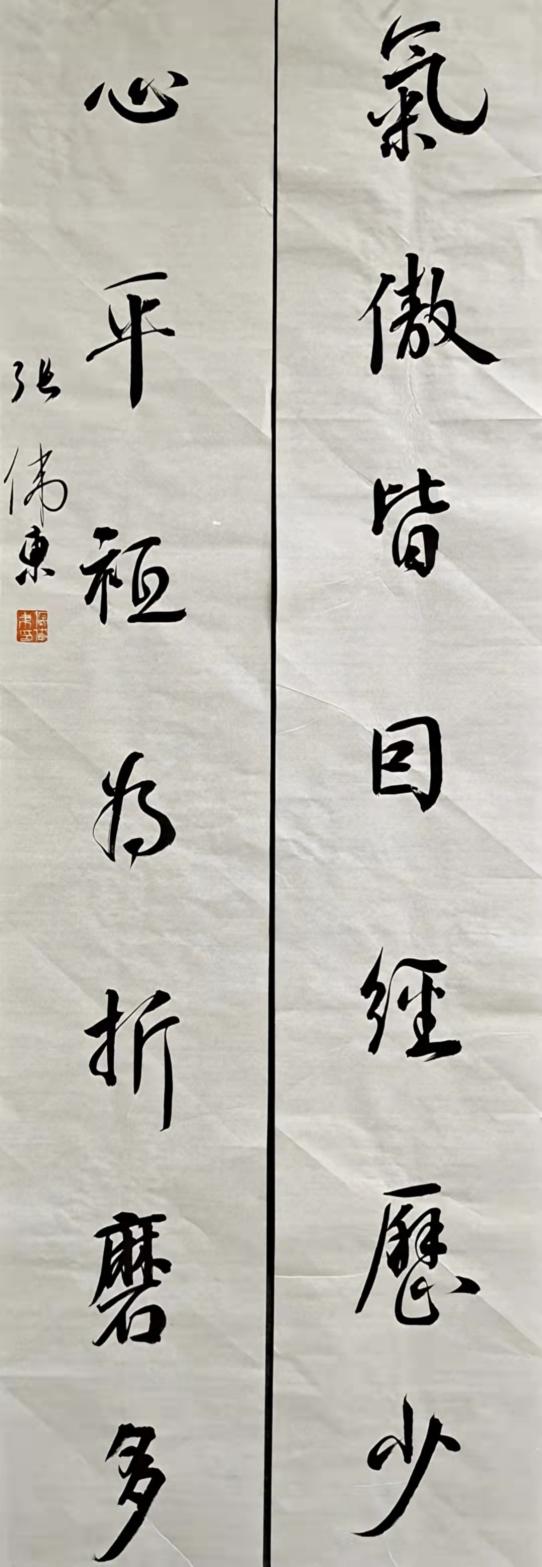 氣傲皆因經歷少
心平祗為折磨多
張偉東